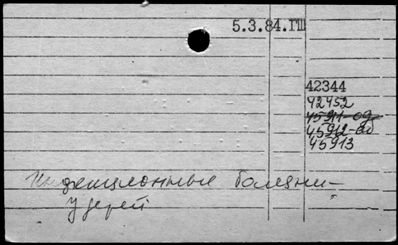 5.3.84.ГШ
42344
42452
45911-09
45912-20
45913
Инфекционные болезни-
у детей